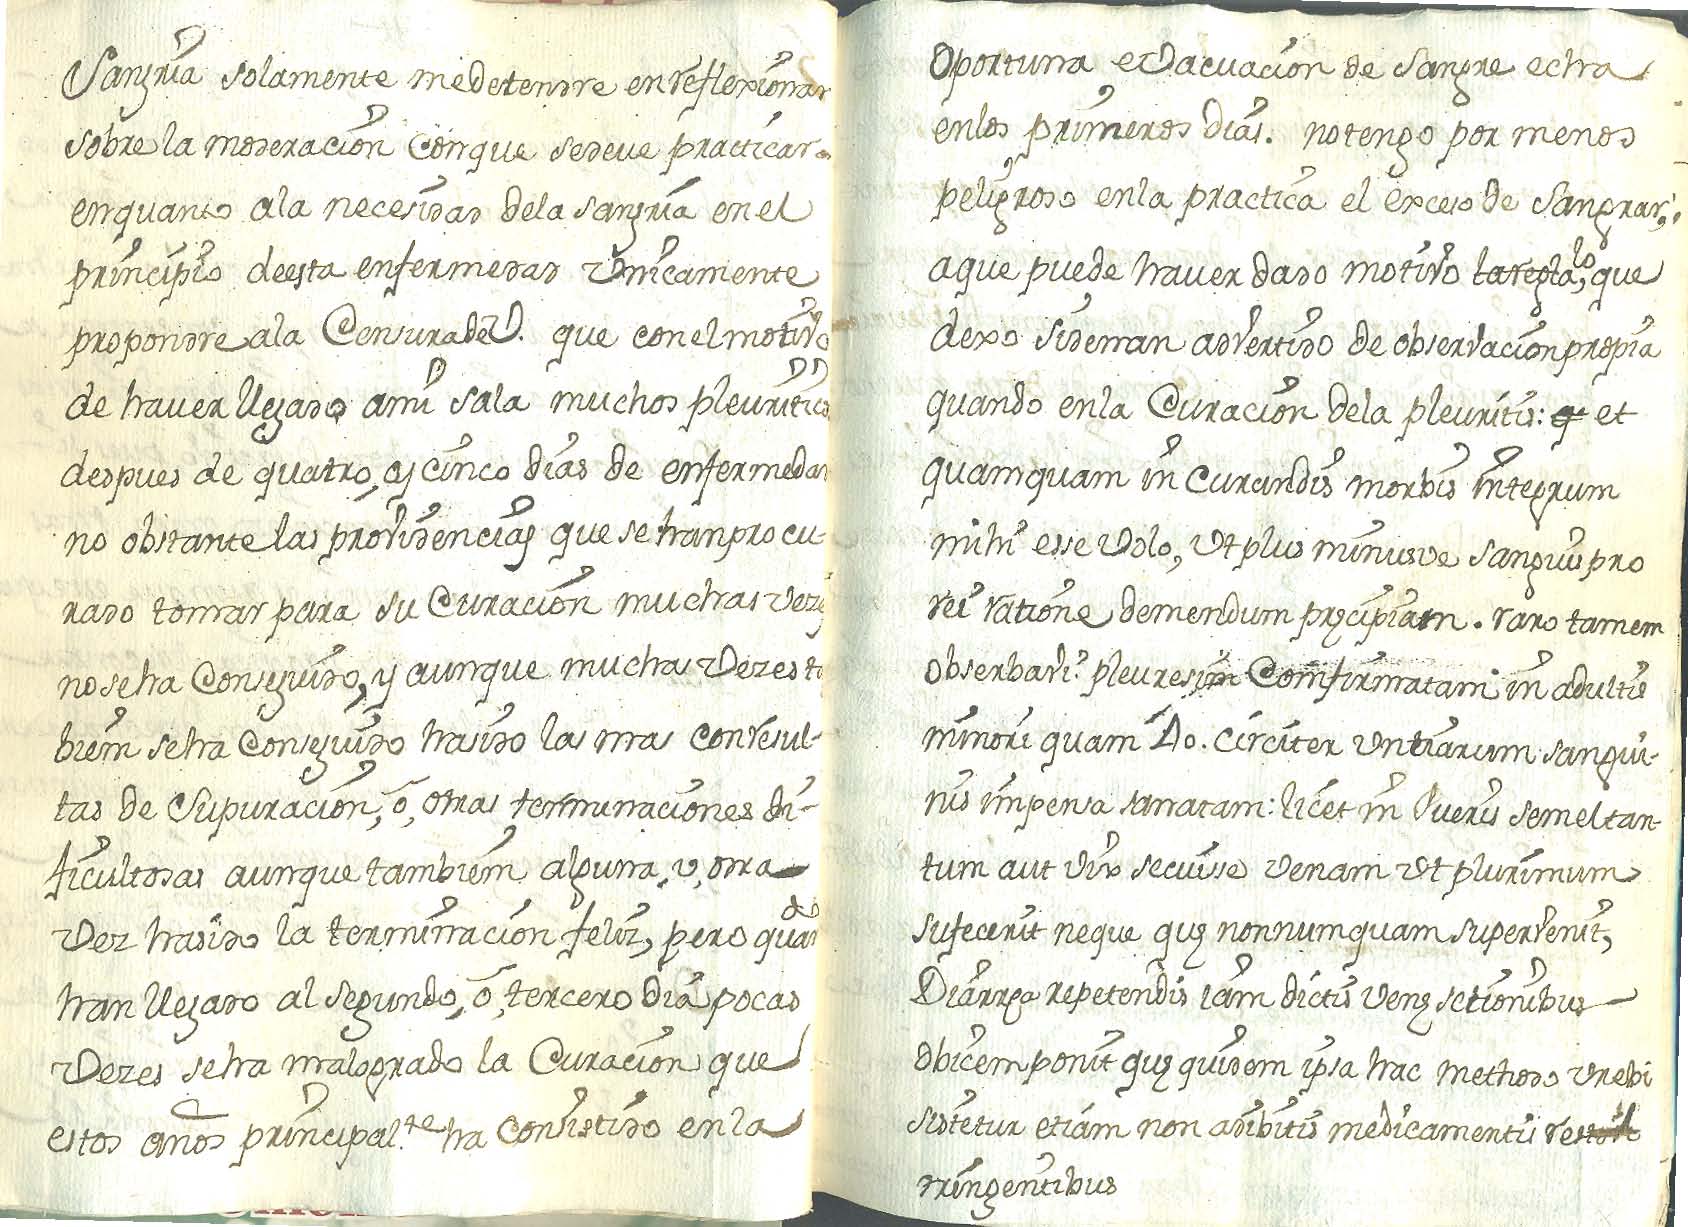 Sangria solamente me detendre en reflexionar
sobre la moderacion con que se deve practicar.
en quanto a la necesidad de la sangria en el
principio de esta enfermedad unicamente
propondre a la Censura de V. que con el motivo
de haver llegado a mi sala muchos pleuriticos
despues de quatro, y cinco dias de enfermedad
no obstante las providencias que se han procu-
rado tomar para su Curacion muchas vezes
no se ha Conseguido, y aunque muchas Vezes ta
bien se ha Conseguido ha sido las mas con resul-
tas de Supuracion, ó, otras terminaciones di-
ficultosas aunque tambien alguna, u, otra
Vez ha sido la terminacion feliz, pero quando
han llegado al segundo, ó, tercero dia pocas
Vezes se ha malogrado la Curacion que
estos años principal.te ha Consistido en la
Oportuna evacuacion de Sangre echa
en los primeros dias. no tengo por menos
peligroso en la practica el exceso de Sangrar,
a que puede haver dado motivo la regla, lo que
dexo Sidenan advertido de observacion propia
quando en la Curacion de la pleuritis: q et
quamquam in curandis morbis integrum
mihi esse volo, ut plus minusve sanguis pro
rei ratione demendum precipiam. raro tamem
obserbavi pleuresim Comfirmatam in adultis
minori quam 40. circiter untiarum sangui-
nis impensa sanatam: licet in Pueris semel tan-
tum aut vix secuisse venam ut plurimum
sufecerit neque que nonnumquam supervenit,
Diarrea repetendis iam dictis vene sctionibus
obicem ponit que quidem ipsa hac methodo vrebi
sistetur etiam non adibitis medicamentis rest
tringentibus